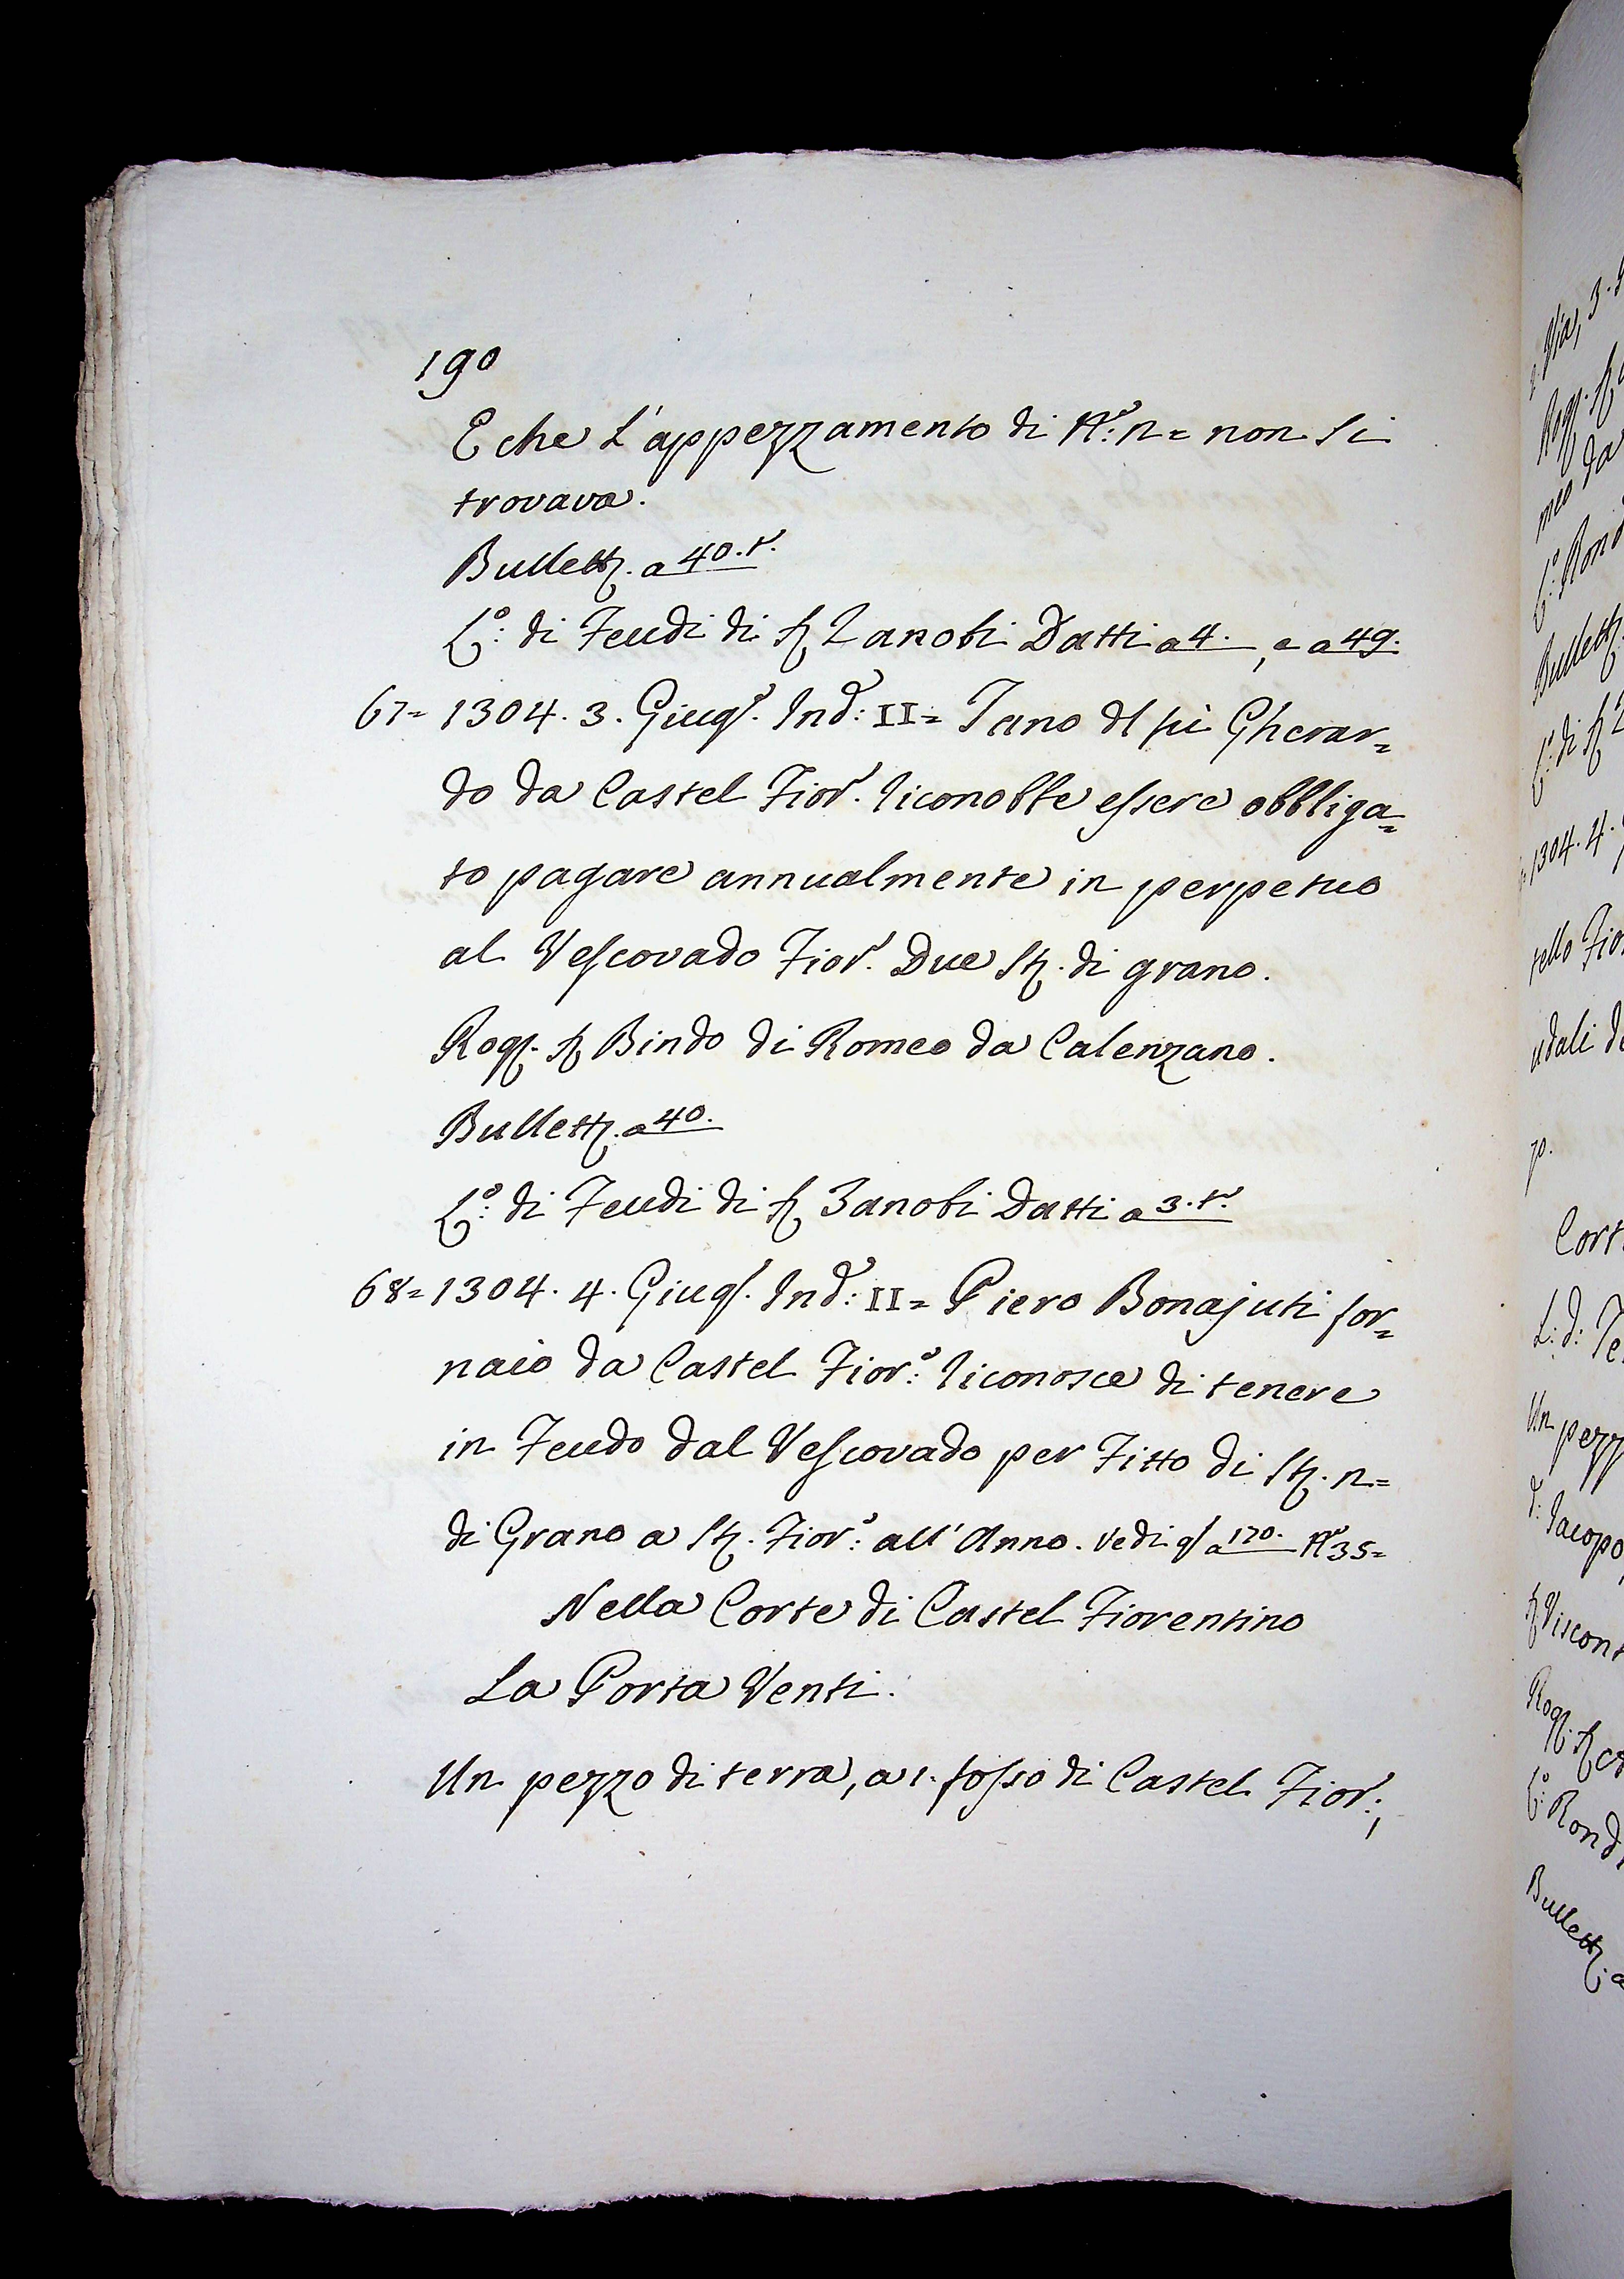 190
E che l'appezzamento di N.º: n= non si
trovava.
Bullett. a 40. t.
L.º: di Feudi di S. Zanobi Datti a 4., e a 49.
67= 1304. 3. Giug. Ind: II= Tano dl fù Gherar=
do da Castel Fior. riconobbe essere obbliga=
to pagare annualmente in perpetuo
al Vescovado Fior. Due St. di grano.
Rog. S. Bindo di Romeo da Calenzano.
Bullett. a 40.
L.º: di Feudi di S. Zanobi Datti a 3. t.
68= 1304. 4. Giug. Ind: II= Piero Bonajuti for=
naio da Castel Fior.º: riconosce di tenere
in Feudo dal Vescovado per Fitto di St. n=
di Grano a St. Fior.º: all'Anno. Vedi q a 170. N.º 35=
Nella Corte di Castel Fiorentino
La Porta Venti.
Un pezzo di terra, a 1. fosso di Castel Fior:,
Via, 3.
Rog. S.
meo da
L.º:
Bullett.
L.º: di S.
1304. 4.
tello Fior
udali
70.
Cort
L: d: Fe
Un pezz
d: Jacopo
S. Viscont
Rog. S.
L.º: Rond
Bullett. a